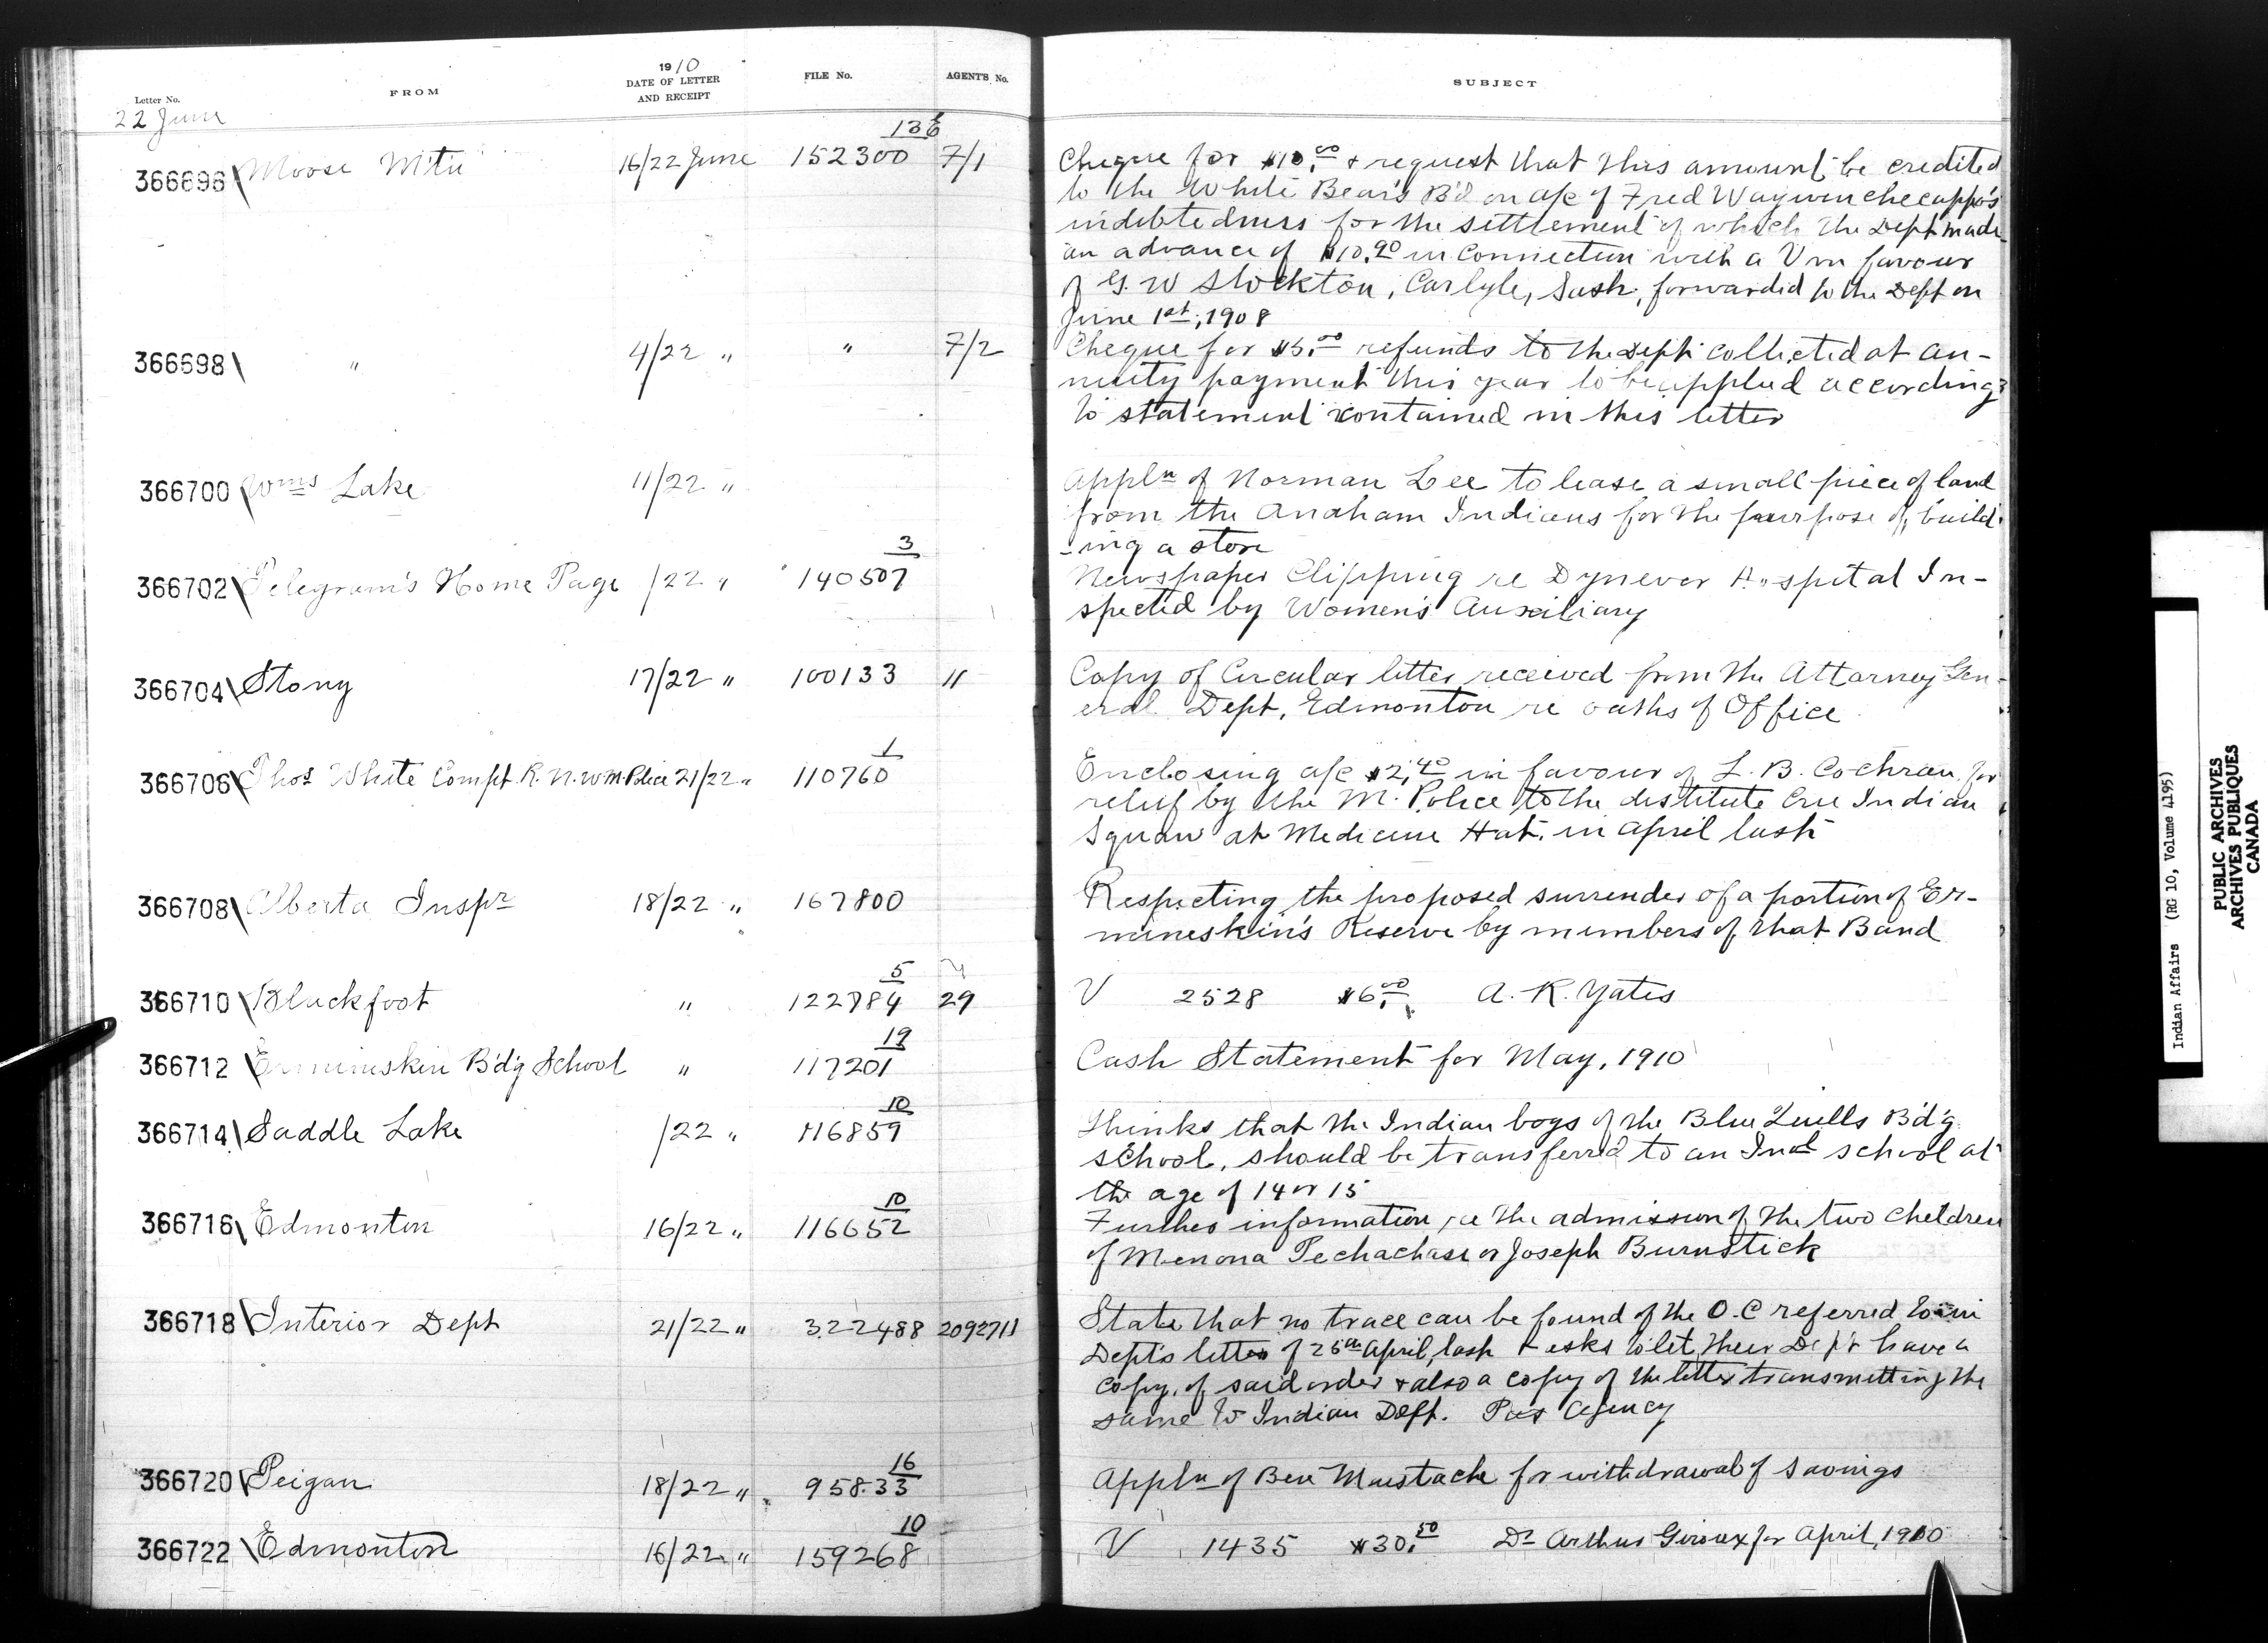 Letter No.
FROM
1910
DATE OF LETTER
AND RECEIPT
FILE No.
AGENT'S No.
SUBJECT
22 June
366696 Moose Mtn 16/22 June 152300 136 7/1
Cheque for $10.00 & request that this amount be credited
to the White Bear's B'd on a/c of Fred
indebtedness for the settlement of which the Dept made
an advance of $10.90 in connection with a V in favour
of G. W Stockton, Carlyle, Sask, forwarded to the Dept on
June 1st, 1908
366698 " 4/22 " " 7/2
Cheque for $5.00 refunds to the Dept collected at an-
nuity payment this year to be applied according
to statement contained in this letter
366700 Wms Lake 11/22 "
Appln of Norman Lee to lease a small piece of land
from the Anaham Indians for the purpose of build-
-ing a store
366702 Telegram's Home Page /22 " 140507 3
Newspaper Clipping re Dynever Hospital In-
spected by Women's Auxiliary
366704 Stony 17/22 " 100133 11
Copy of Circular letter received from the Attorney Gen-
eral Dept, Edmonton re oaths of Office
366706 Thos White Compt R. N. W M. Police 21/22 " 110760 1
Enclosing a/c $2.40 in favour of L. B. Cochran for
relief by the M. Police to the destitute Cree Indian
Squaw at Medicine Hat, in April last
366708 Alberta Inspr 18/22 " 167800
Respecting the proposed surrender of a portion of Er-
mineskin's Reserve by members of that Band
366710 Blackfoot " 122784 5 29
V 2528 $6.00 A. K. Yates
366712 Ermineskin B'd'g School " 117201 19
Cash Statement for May, 1910
366714 Saddle Lake /22 " 116859 10
Thinks that the Indian boys of the Blue Quills B'd'g
School, should be transferred to an Indl school at
the age of 14 or 15
366716 Edmonton 16/22 " 116652 10
Further information re the admission of the two children
of Menona Pechachase or Joseph Burnstick
366718 Interior Dept 21/22 " 322488 209271
State that no trace can be found of the O.C referred to in
Dept's letter of 26th April, last & asks to let their Dept have a
copy, of said order & also a copy of the letter transmitting the
same to Indian Dept. Pas Agency
366720 Peigan 18/22 " 95833 16
Appln of Ben Mustache for withdrawal of savings
366722 Edmonton 16/22 " 159268 10
V 1435 $30.50 Dr Arthur Giroux for April, 1910
Indian Affairs (RG 10, Volume 4195)
PUBLIC ARCHIVES
ARCHIVES PUBLIQUES
CANADA